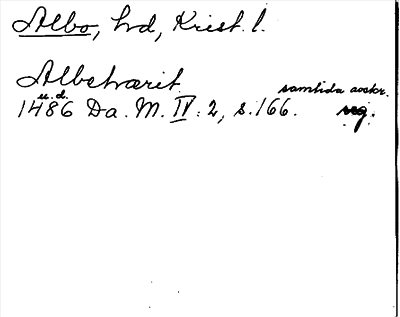 Albo, hd, Krist. l.
Albohærit samtida avskr.
u. d.
1486 Da. M. IV: 2, s. 166. reg.